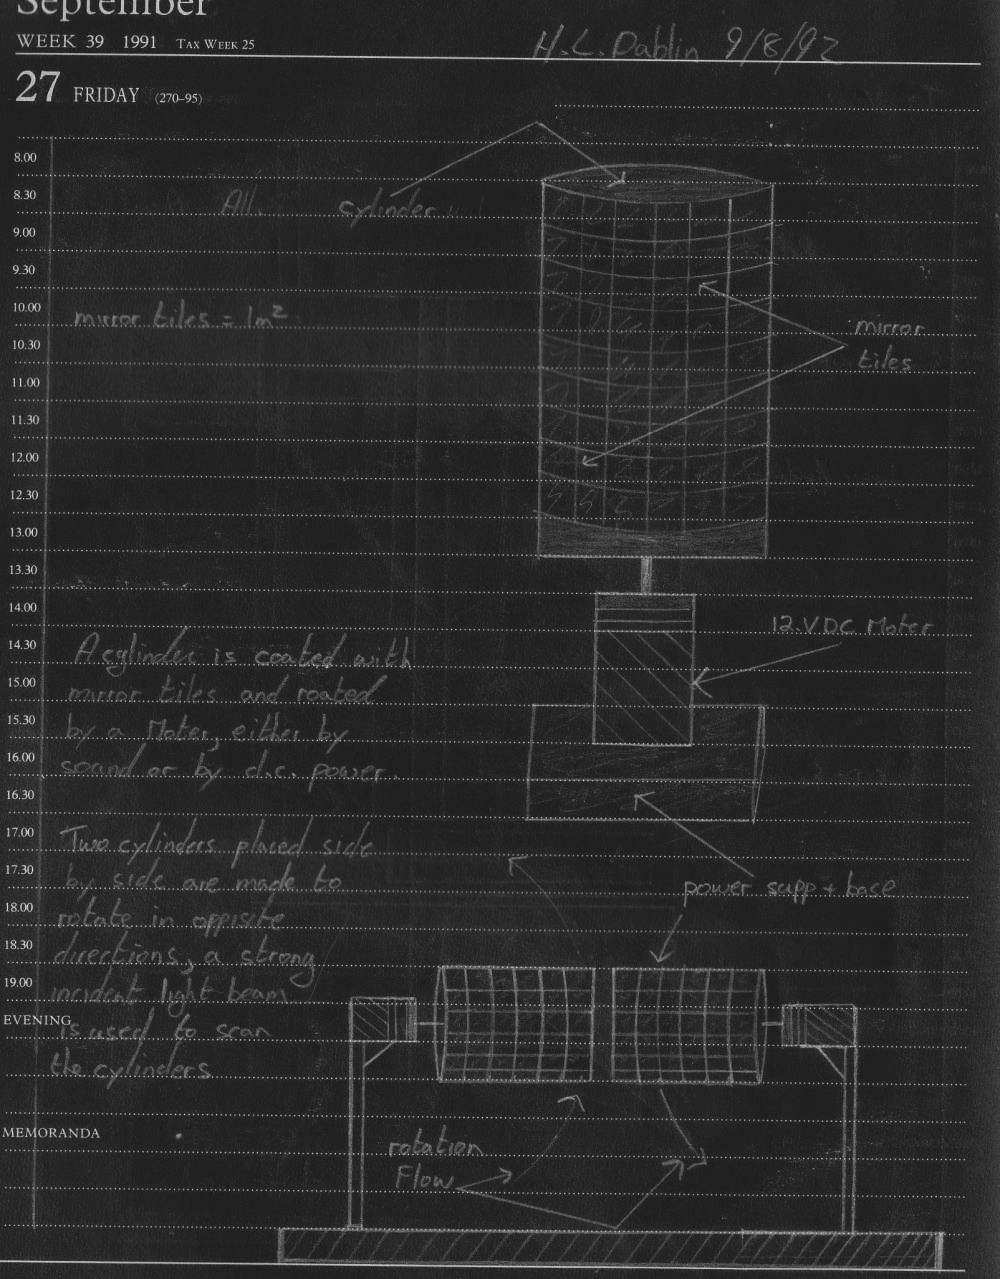 September
WEEK 39 1991 TAX WEEK 25
H.L. Dablin 9/8/92
27 FRIDAY (270-95)
8.00
8.30
All cylinder
9.00
9.30
10.00
mirror tiles = 1m²
mirror
tiles
10.30
11.00
11.30
12.00
12.30
13.00
13.30
14.00
12.V DC Moter
14.30
A cylinder is coated with
15.00
mirror tiles and roated
15.30
by a Moter, either by
16.00
sound or by d.c. power.
16.30
17.00
Two cylinders placed side
17.30
by side are made to
power supp + base
18.00
rotate in oppisite
18.30
directions, a strong
19.00
incident light beam
EVENING
is used to scan
the cylinders
MEMORANDA
rotation
Flow